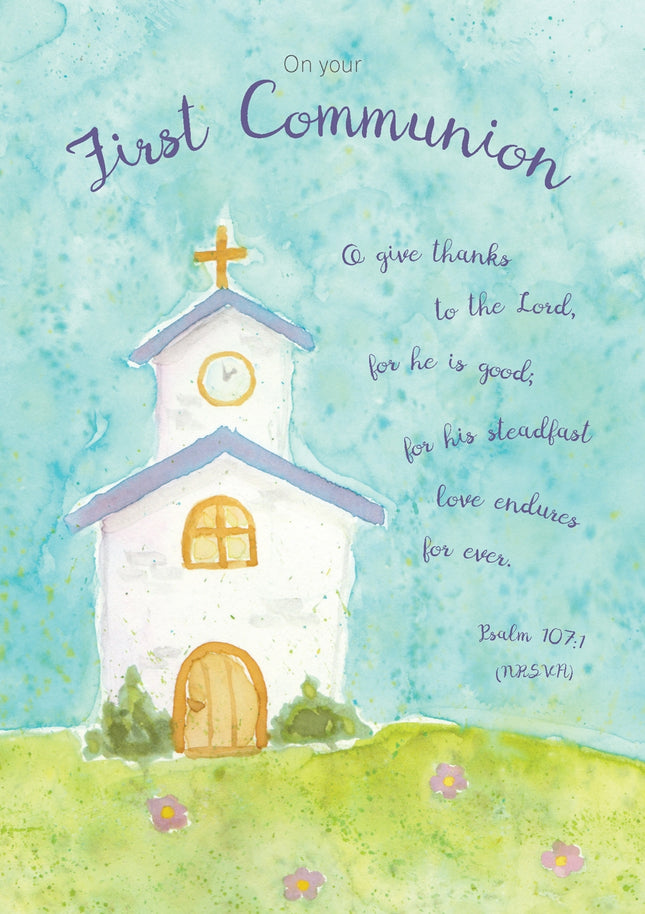 On your
First Communion
O give thanks
to the Lord,
for he is good;
for his steadfast
love endures
for ever.
Psalm 107:1
(NRSVA)